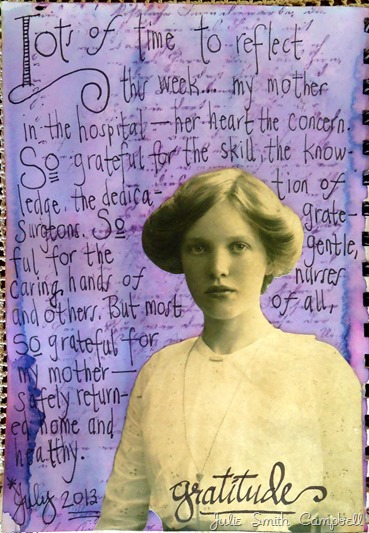 Lots of time to reflect
this week... my mother
in the hospital — her heart the concern.
So grateful for the skill, the know-
ledge, the dedica- tion of
surgeons. So grate-
ful for the gentle,
caring hands of nurses
and others. But most of all,
So grateful for
my mother —
safely return-
ed home and
healthy.
*July 2013
gratitude
Julie Smith Campbell